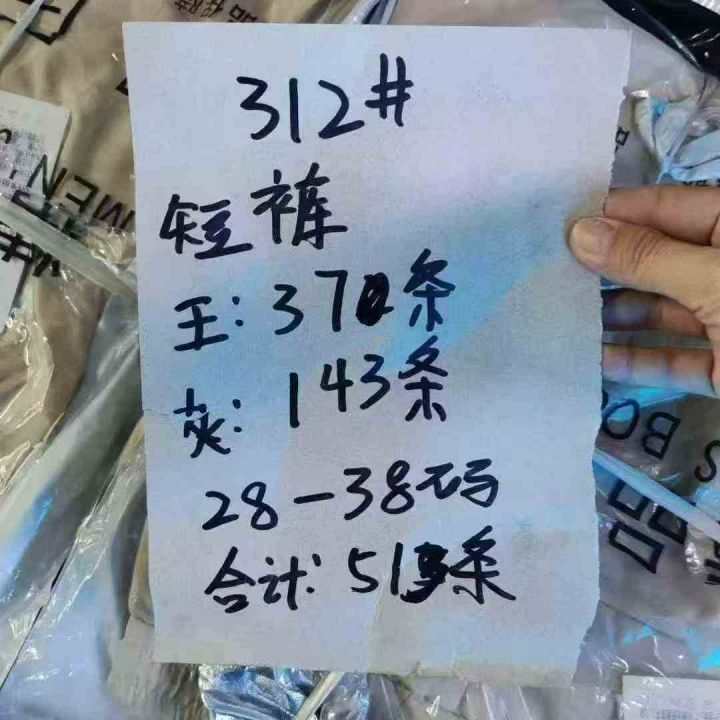 312#
短裤
王：370条
灰：143条
28-38码
合计：513条
MEN
BO
品